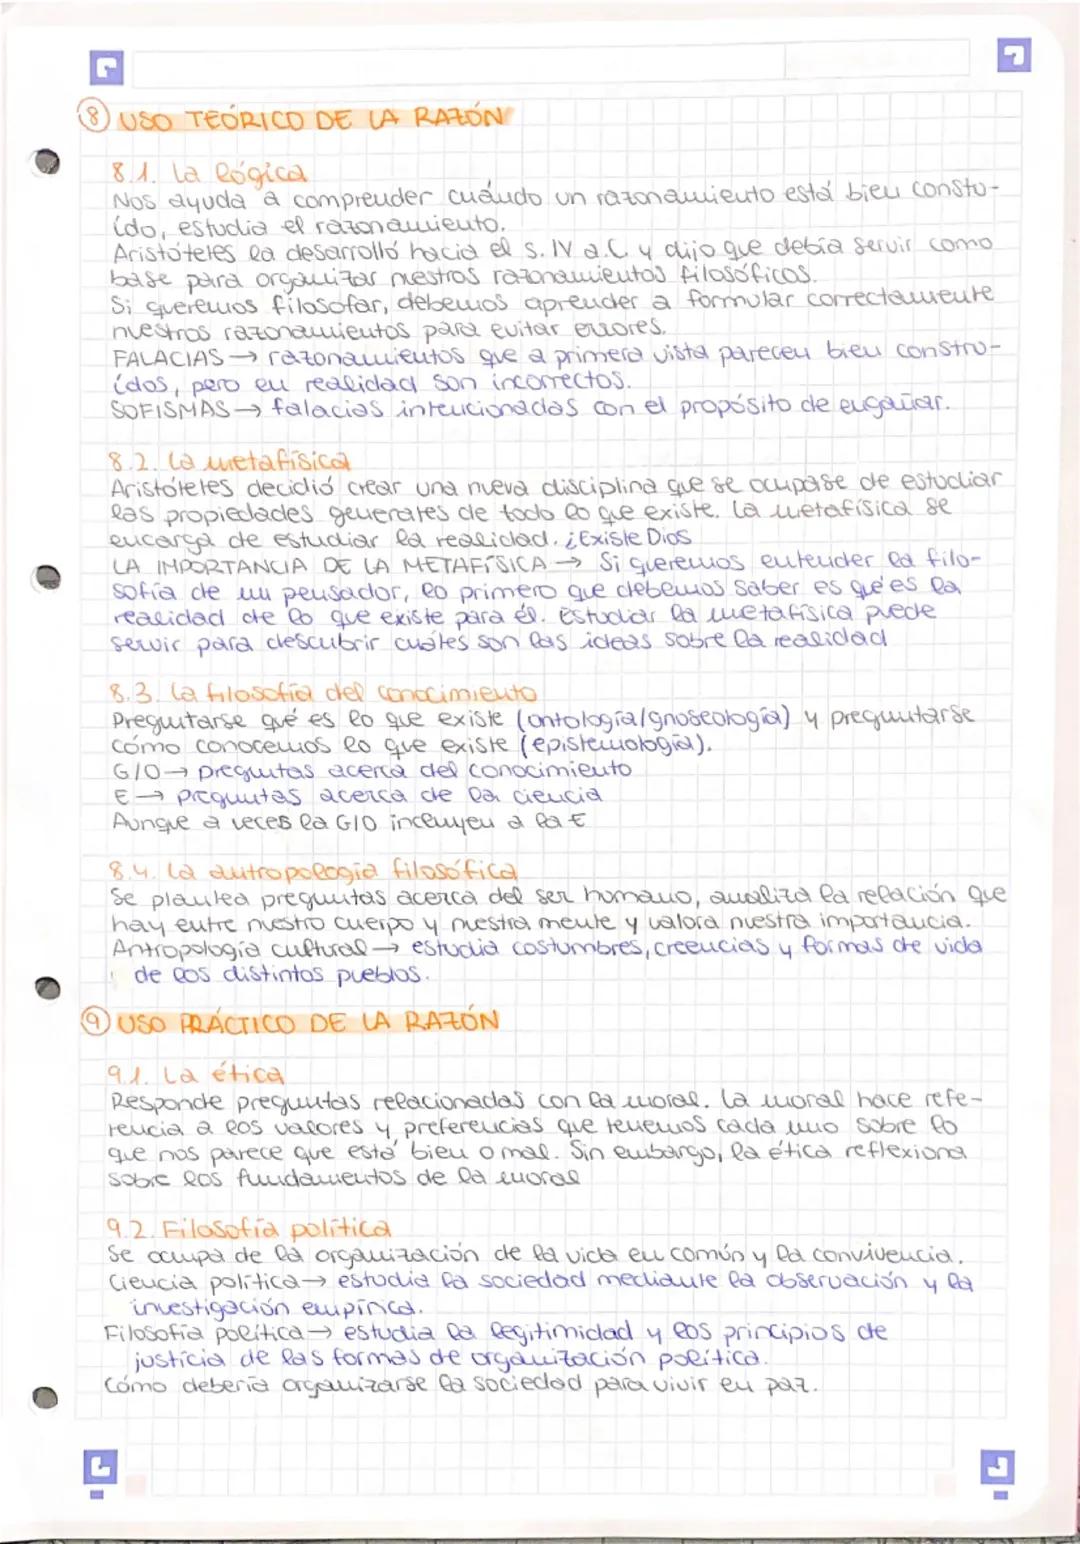 ⑧ USO TEÓRICO DE LA RAZÓN
8.1. La lógica
Nos ayuda a comprender cuándo un razonamiento está bien constu-
ído, estudia el razonamiento.
Aristóteles la desarrolló hacia el s. IV a.C. y dijo que debía servir como
base para organizar nuestros razonamientos filosóficos.
Si queremos filosofar, debemos aprender a formular correctamente
nuestros razonamientos para evitar errores.
FALACIAS → razonamientos que a primera vista parecen bien constru-
ídos, pero en realidad son incorrectos.
SOFISMAS → falacias intencionadas con el propósito de engañar.
8.2. La metafísica
Aristóteles decidió crear una nueva disciplina que se ocupase de estudiar
las propiedades generales de todo lo que existe. La metafísica se
encarga de estudiar la realidad. ¿Existe Dios
LA IMPORTANCIA DE LA METAFÍSICA → Si queremos entender la filo-
sofía de un pensador, lo primero que debemos saber es qué es la
realidad de lo que existe para él. Estudiar la metafísica puede
servir para descubrir cuáles son las ideas sobre la realidad
8.3. La filosofía del conocimiento
Preguntarse qué es lo que existe (ontología/gnoseología) y preguntarse
cómo conocemos lo que existe (epistemología).
G/O → preguntas acerca del conocimiento
E → preguntas acerca de la ciencia
Aunque a veces la G/O incluyen a la E
8.4. La antropología filosófica
Se plantea preguntas acerca del ser humano, analiza la relación que
hay entre nuestro cuerpo y nuestra mente y valora nuestra importancia.
Antropología cultural → estudia costumbres, creencias y formas de vida
de los distintos pueblos.
⑨ USO PRÁCTICO DE LA RAZÓN
9.1. La ética
Responde preguntas relacionadas con la moral. La moral hace refe-
rencia a los valores y preferencias que tenemos cada uno sobre lo
que nos parece que está bien o mal. Sin embargo, la ética reflexiona
sobre los fundamentos de la moral
9.2. Filosofía política
Se ocupa de la organización de la vida en común y la convivencia.
Ciencia política → estudia la sociedad mediante la observación y la
investigación empírica.
Filosofía política → estudia la legitimidad y los principios de
justicia de las formas de organización política.
Cómo debería organizarse la sociedad para vivir en paz.